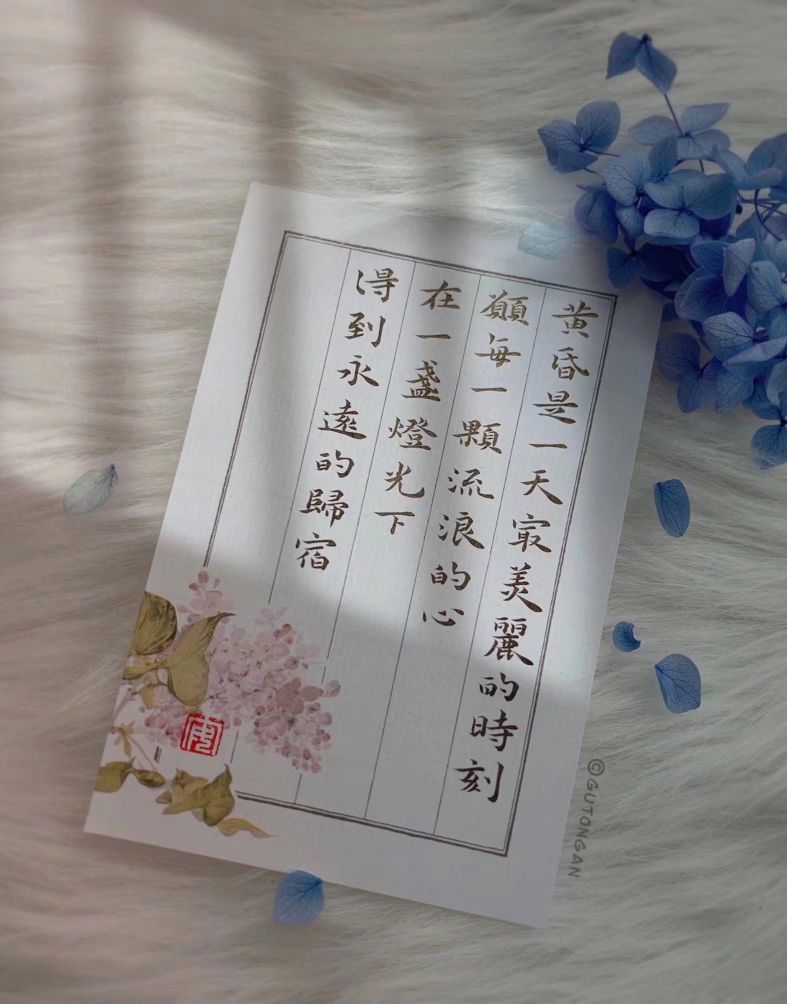 黄昏是一天寂美麗的時刻
願每一顆流浪的心
在一盞燈光下
得到永遠的歸宿
©GUTONGAN